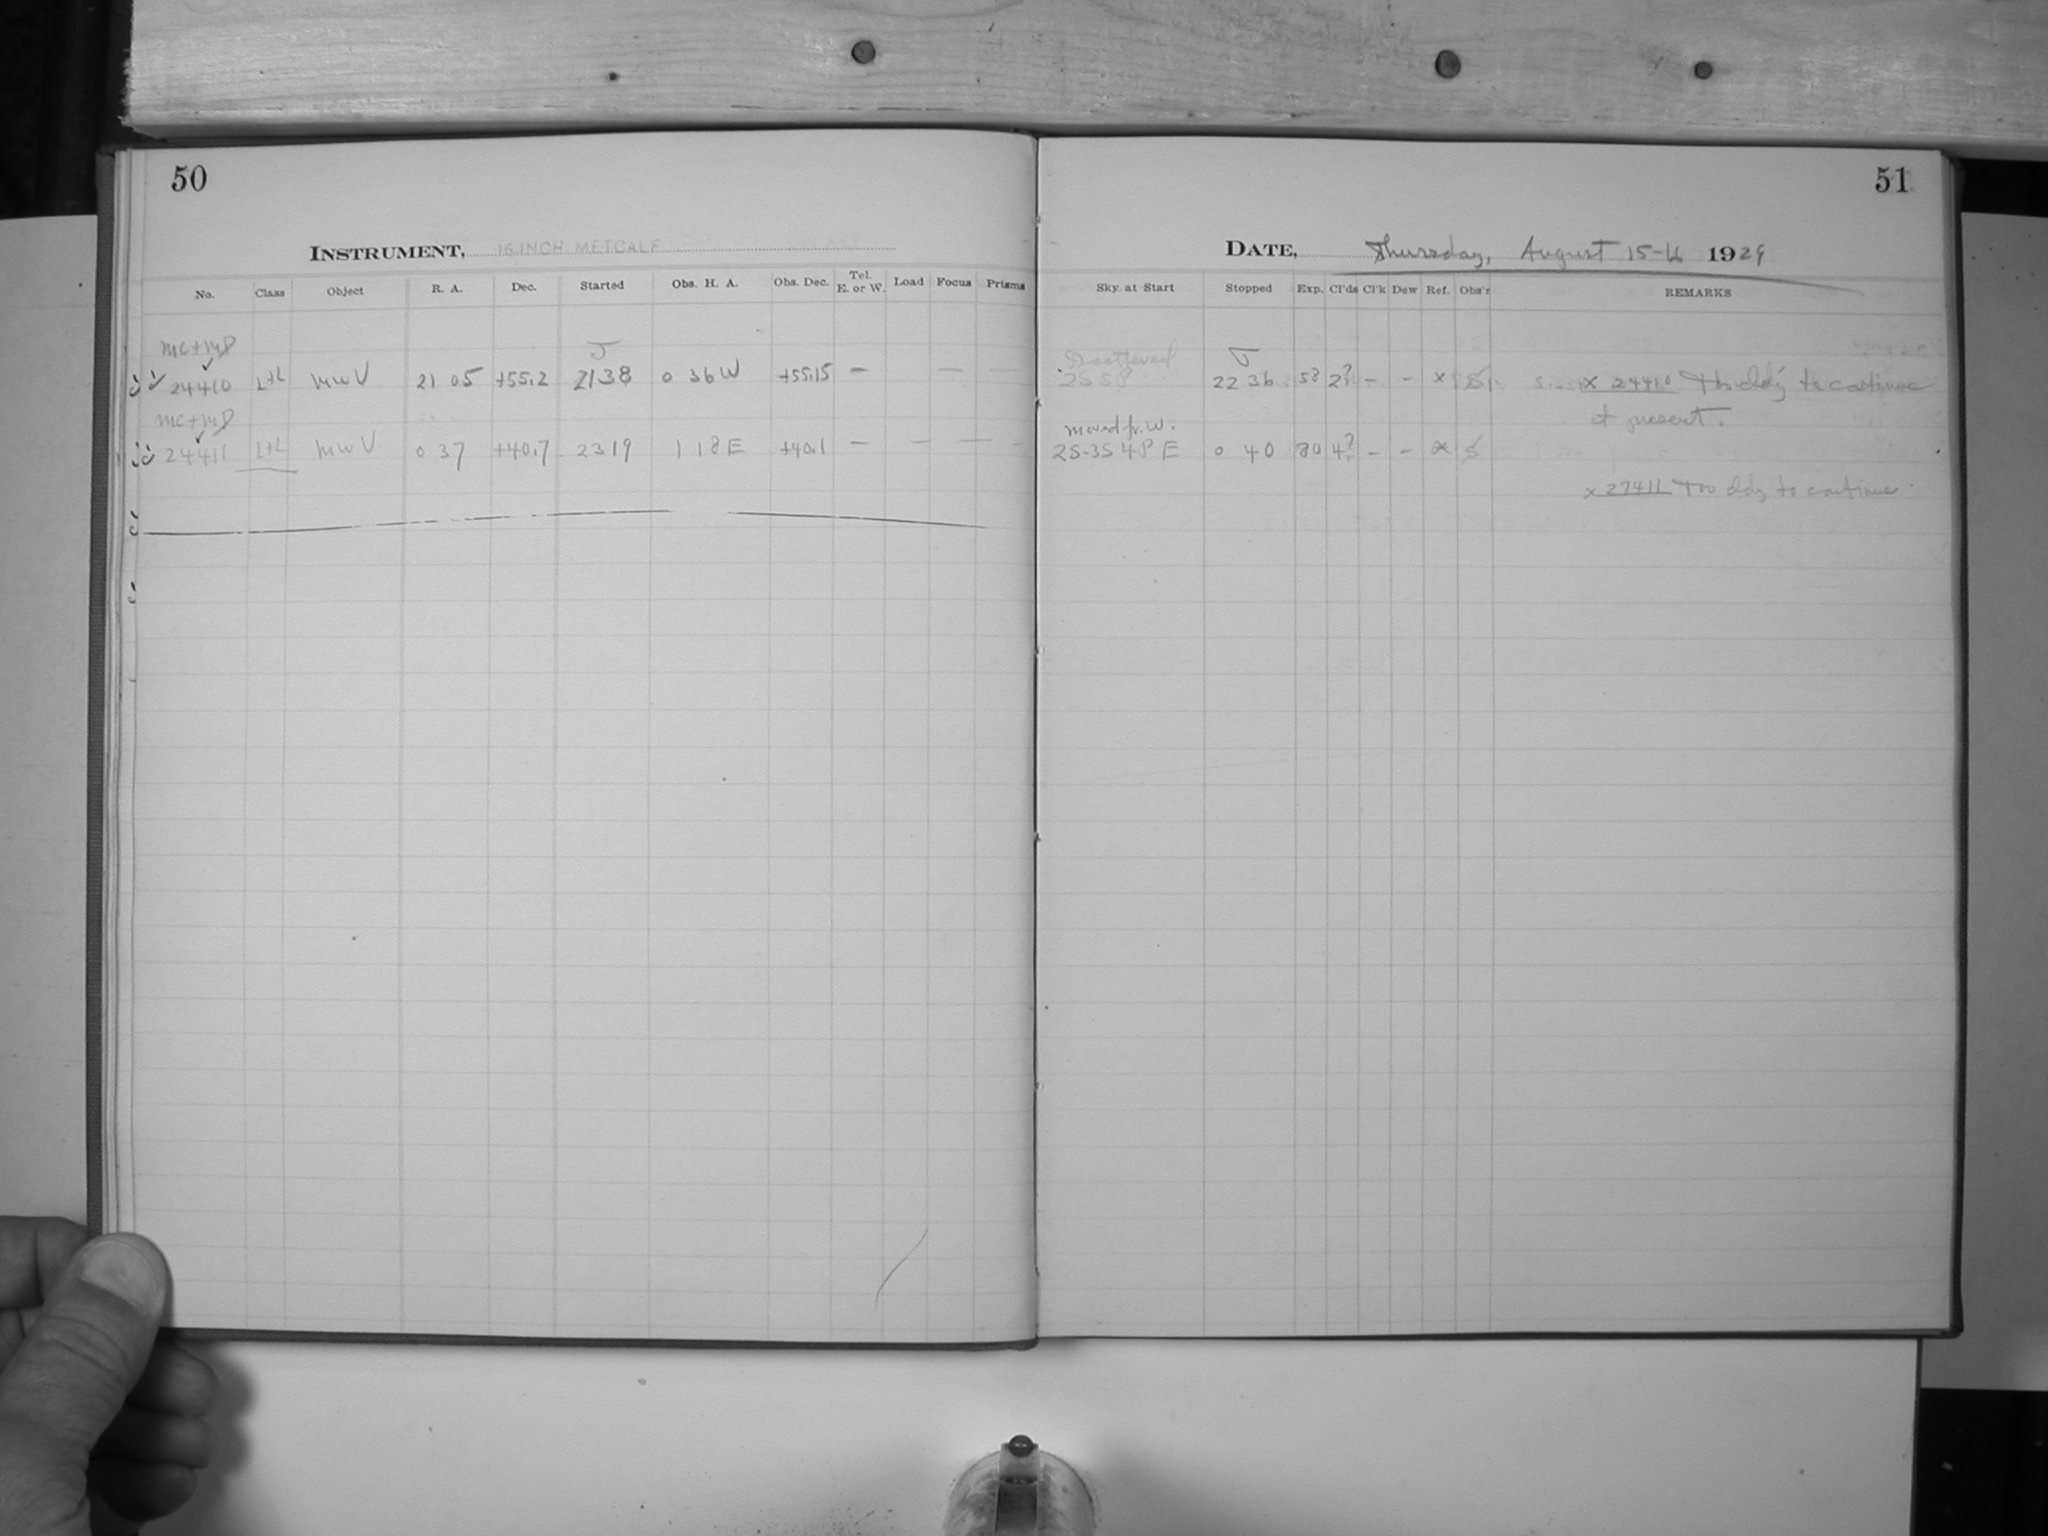 50
INSTRUMENT, 16 INCH METCALF
No. Class Object R. A. Dec. Started Obs. H. A. Obs. Dec. Tel. E. or W. Load Focus Prisms
24410 L+L MWV 21 05 +55.2 2138 0 36 W +55.15 — — —
24411 L+L MWV 0 37 +40.7 2319 1 18 E +40.1 — — — —
51
DATE, Thursday, August 15-16 1929
Sky at Start Stopped Exp. Cl'ds Cl'k Dew Ref. Obs'r REMARKS
Scattered
2S 22 36 58 2? — — x x 24410 Too cldy to continue
at present.
moved fr. W.
2S-3S 4P E 0 40 80 4? — — x
x 27411 Too cldy to continue